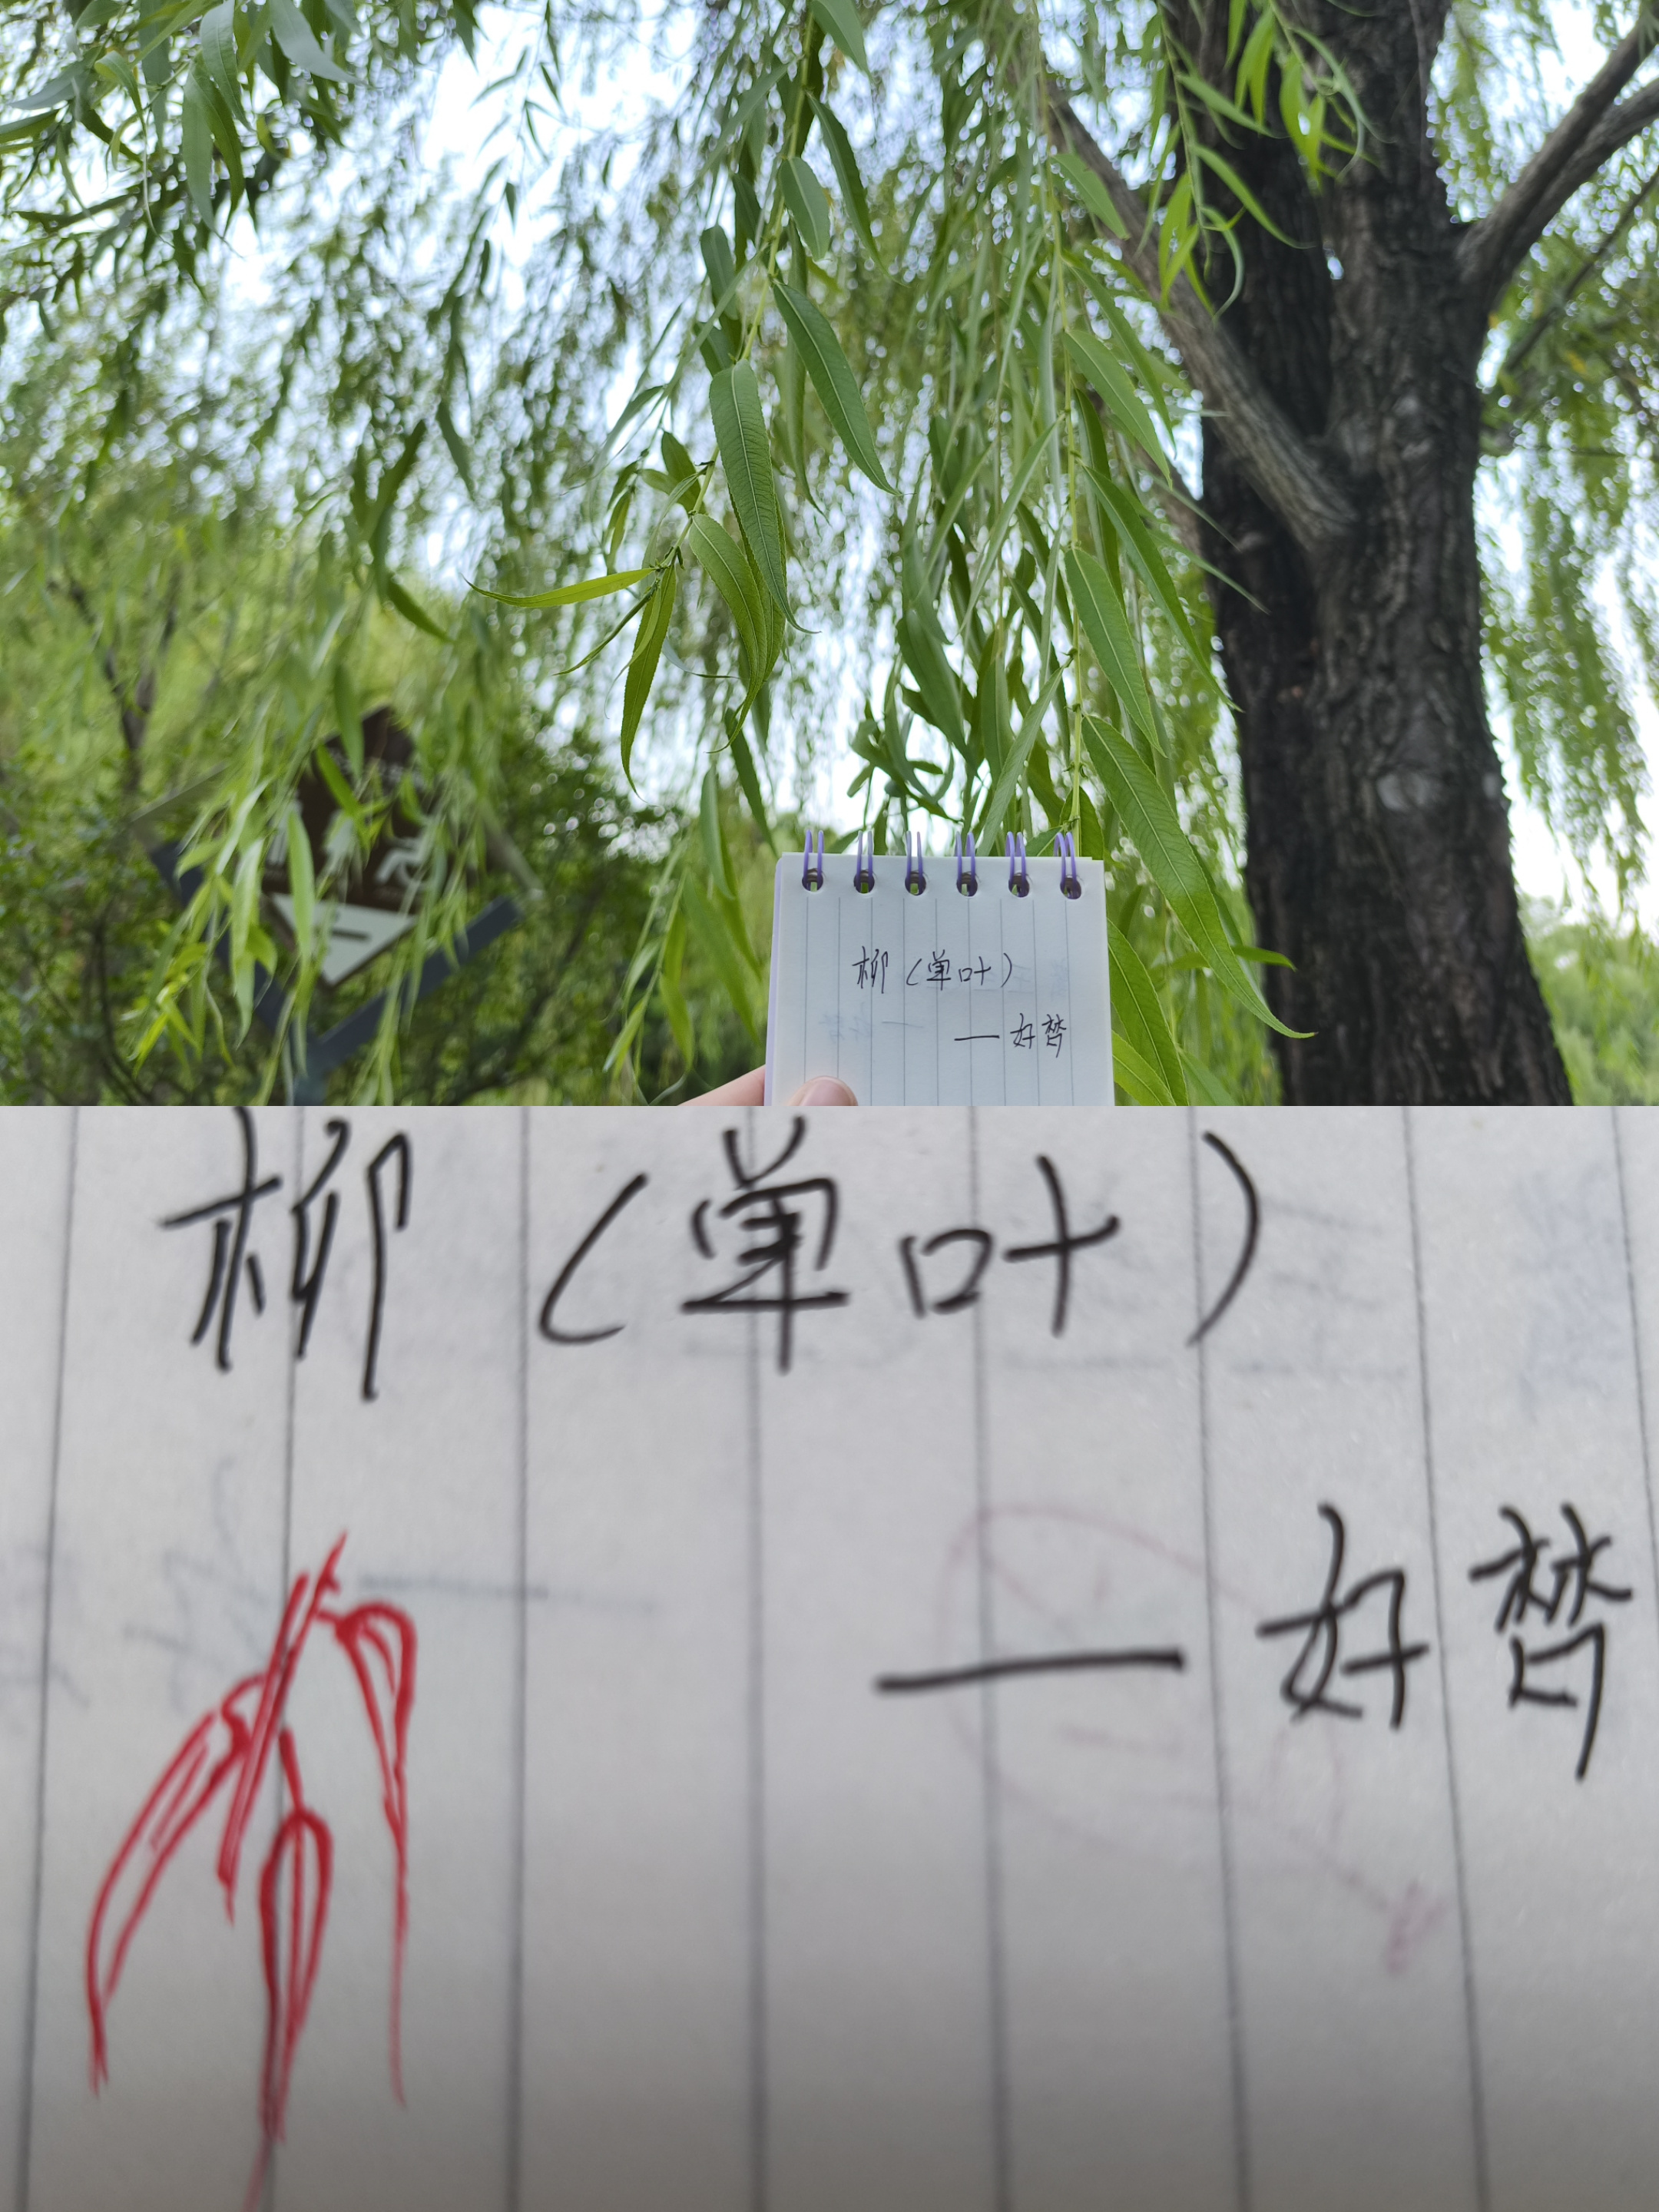 柳（单叶）
—好梦
柳（单叶）
—好梦